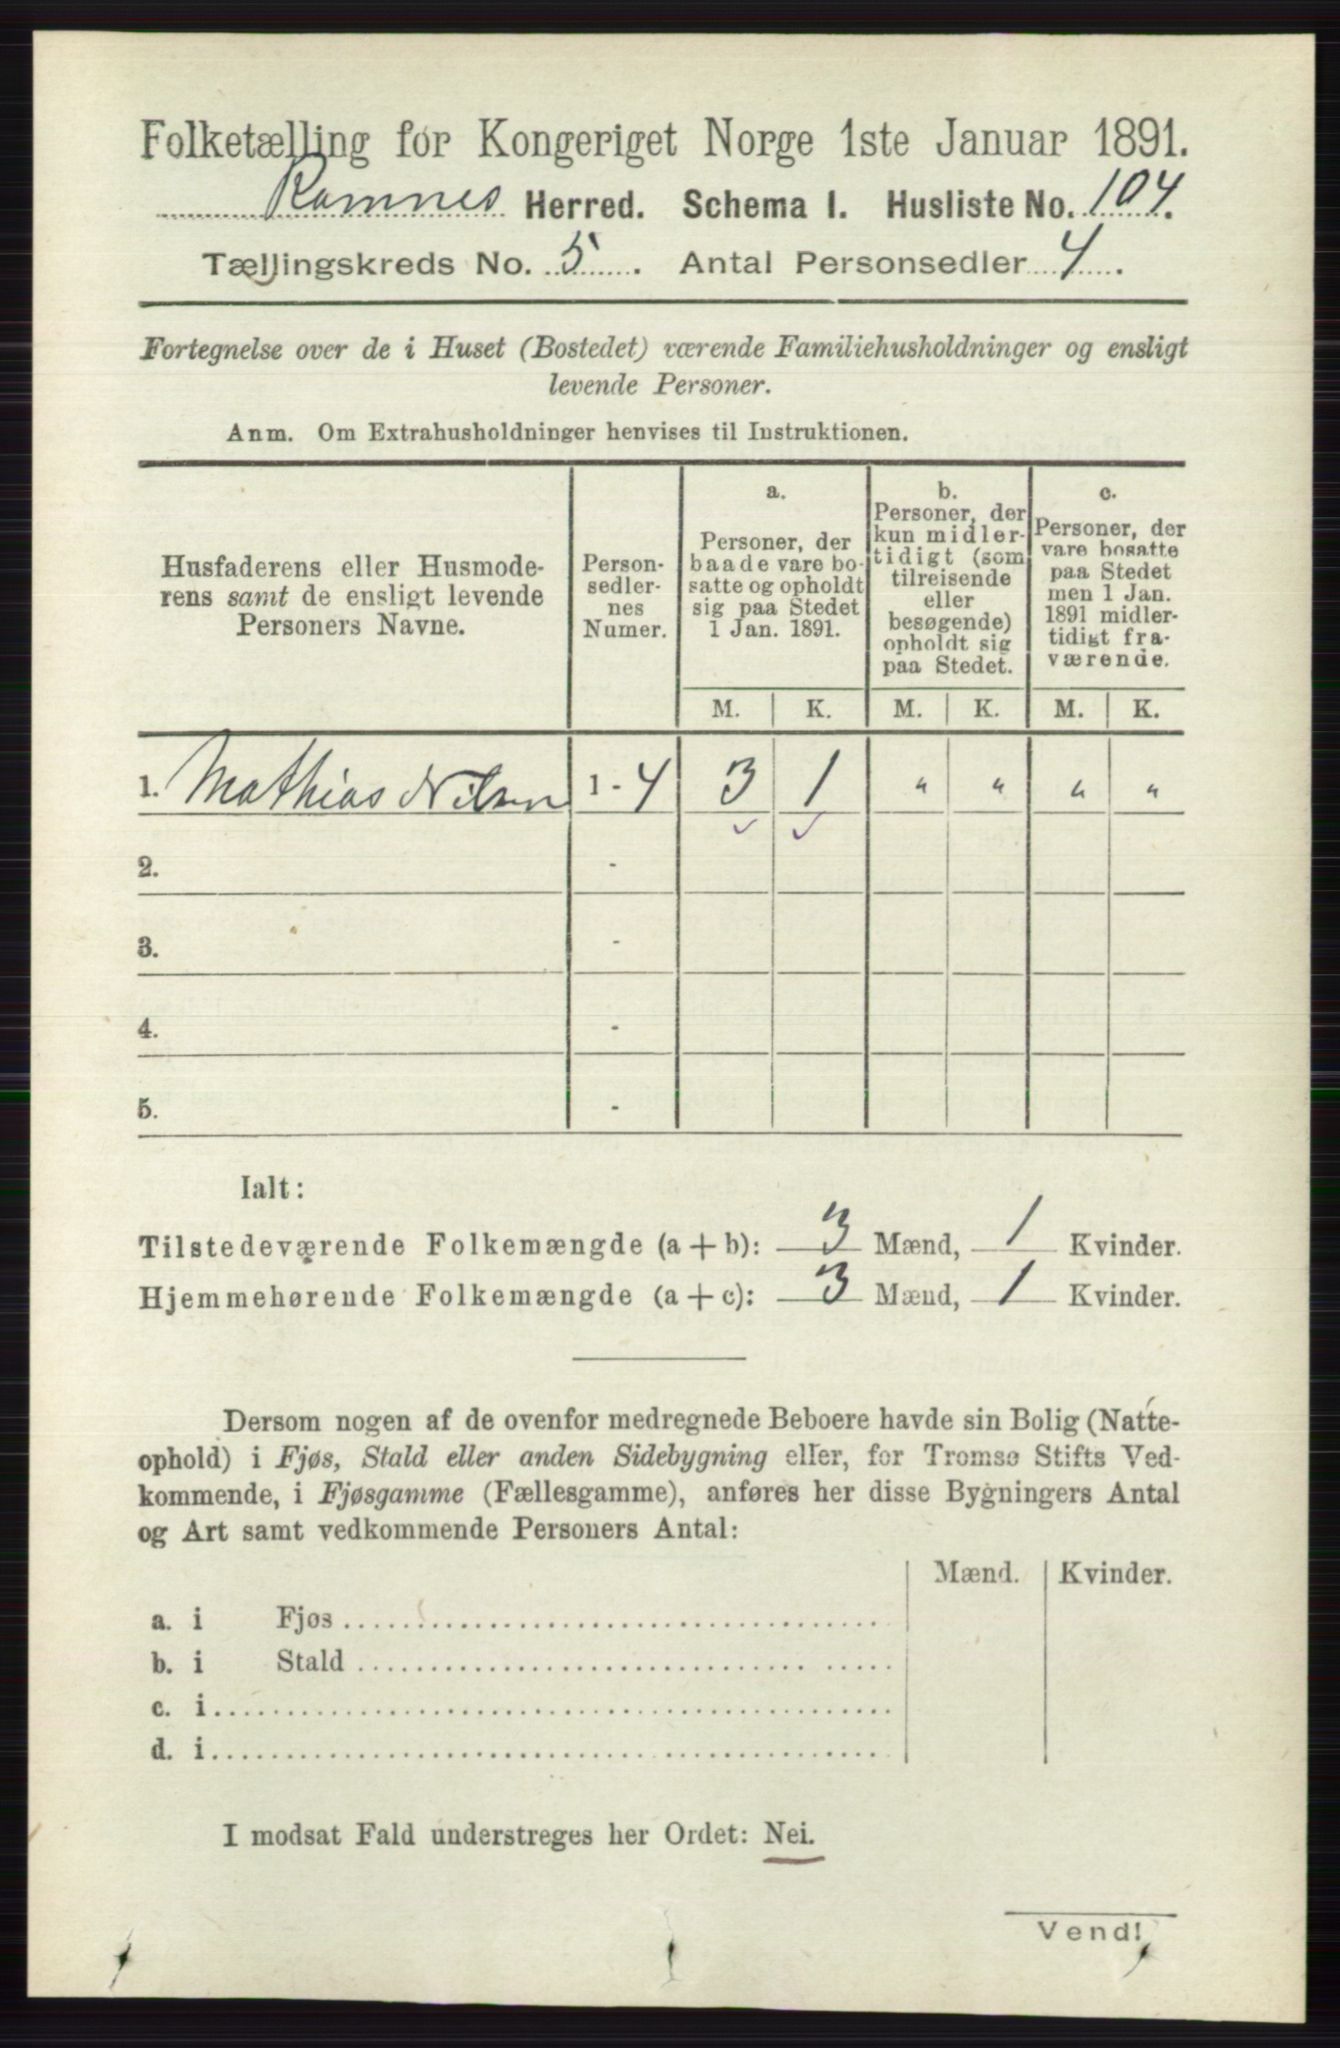 Folketælling for Kongeriget Norge 1ste Januar 1891.
Ramnes Herred. Schema I. Husliste No. 104.
Tællingskreds No. 5. Antal Personsedler 4.
Fortegnelse over de i Huset (Bostedet) værende Familiehusholdninger og ensligt
levende Personer.
Anm. Om Extrahusholdninger henvises til Instruktionen.
Husfaderens eller Husmode-
rens samt de ensligt levende
Personers Navne.
Person-
sedler-
nes
Numer.
a.
Personer, der
baade vare bo-
satte og opholdt
sig paa Stedet
1 Jan. 1891.
b.
Personer, der
kun midler-
tidigt (som
tilreisende
eller
besøgende)
opholdt sig
paa Stedet.
c.
Personer, der
vare bosatte
paa Stedet
men 1 Jan.
1891 midler-
tidigt fra-
værende.
M. K. M. K. M. K.
1. Mathias Nilsen 1 - 4 3 1 " " " "
2. -
3. -
4. -
5. -
Ialt:
Tilstedeværende Folkemængde (a + b): 3 Mænd, 1 Kvinder.
Hjemmehørende Folkemængde (a + c): 3 Mænd, 1 Kvinder.
Dersom nogen af de ovenfor medregnede Beboere havde sin Bolig (Natte-
ophold) i Fjøs, Stald eller anden Sidebygning eller, for Tromsø Stifts Ved-
kommende, i Fjøsgamme (Fællesgamme), anføres her disse Bygningers Antal
og Art samt vedkommende Personers Antal:
Mænd. Kvinder.
a. i Fjøs
b. i Stald
c. i
d. i
I modsat Fald understreges her Ordet: Nei.
Vend!